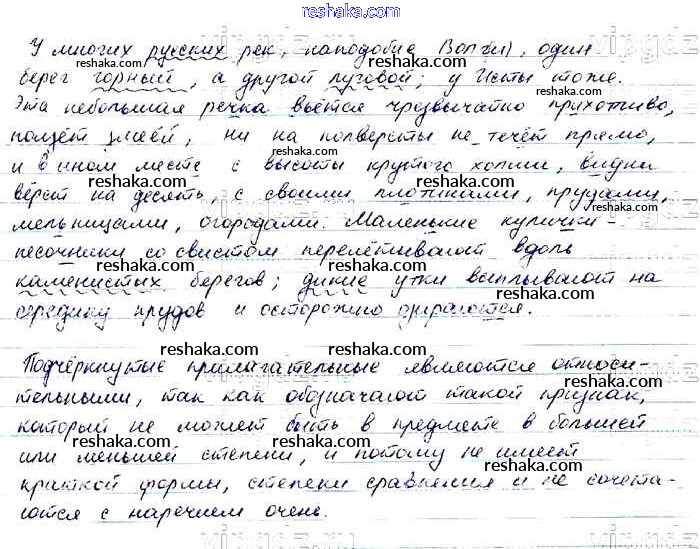 reshaka.com
У многих русских рек, наподобие Волги, один
берег горный, а другой луговой; у Исты тоже.
Эта небольшая речка вьётся чрезвычайно прихотливо,
ползёт змеёй, ни на полверсты не течёт прямо,
и в ином месте с высоты крутого холма, видна
вёрст на десять, с своими плотинами, прудами,
мельницами, огородами. Маленькие кулички-
песочники со свистом перелётывают вдоль
каменистых берегов; дикие утки выплывают на
середину прудов и осторожно озираются.
Подчёркнутые прилагательные являются относи-
тельными, так как обозначают такой признак,
который не может быть в предмете в большей
или меньшей степени, и потому не имеет
краткой формы, степени сравнения и не сочета-
ются с наречием очень.
reshaka.com